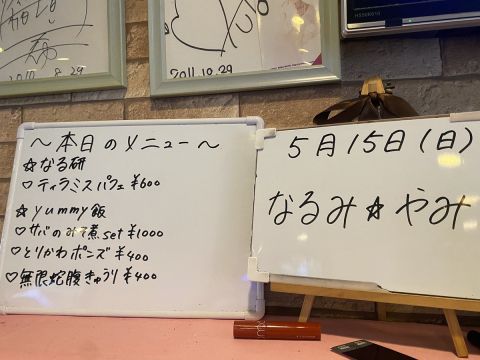 2010.8.29
2011.10.29
～本日のメニュー～
☆なる研
♡ティラミスパフェ ¥600
☆yummy飯
♡サバのみそ煮set ¥1000
♡とりかわポンズ ¥400
♡無限蛇腹きゅうり ¥400
5月15日(日)
なるみ☆やみ